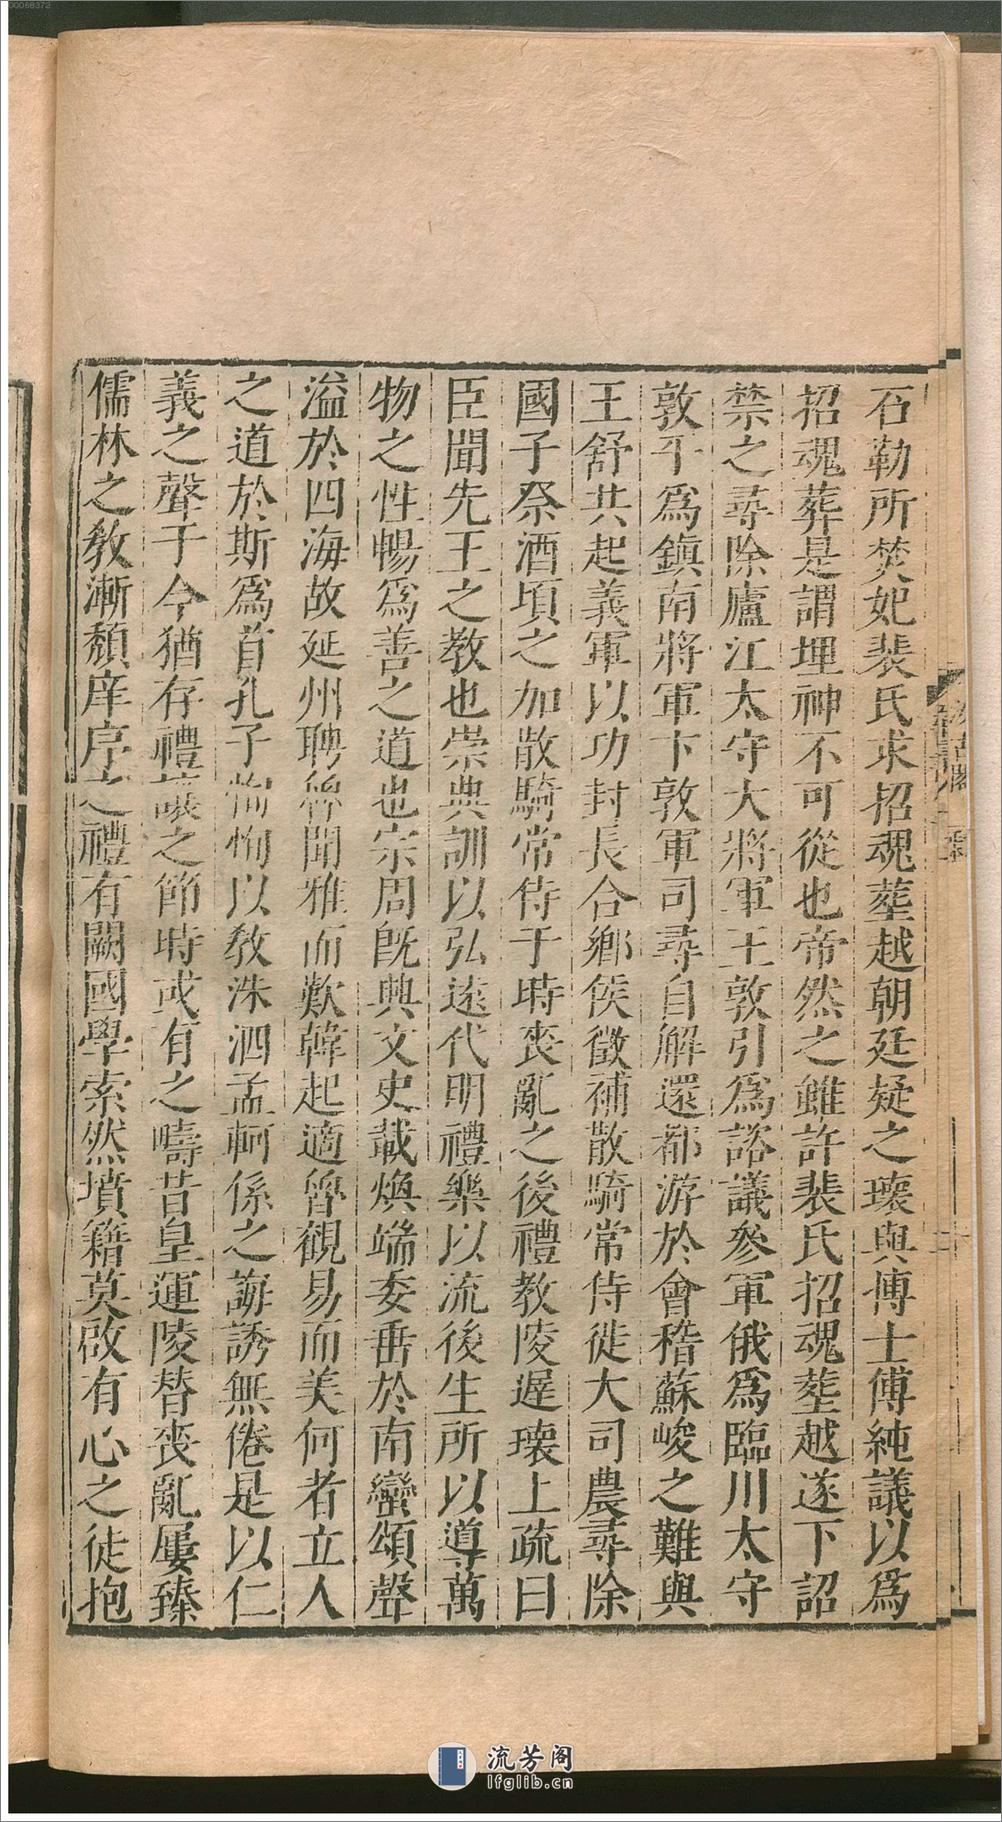 石勒所焚妃裴氏求招魂葬越朝廷疑之瓌與博士傅純議以爲
招魂葬是謂埋神不可從也帝然之雖許裴氏招魂葬越遂下詔
禁之尋除廬江太守大將軍王敦引爲諮議參軍俄爲臨川太守
敦平爲鎮南將軍卞敦軍司尋自解還都游於會稽蘇峻之難與
王舒共起義軍以功封長合鄉侯徵補散騎常侍徙大司農尋除
國子祭酒頃之加散騎常侍于時喪亂之後禮教陵遲瓌上疏曰
臣聞先王之教也崇典訓以弘遠代明禮樂以流後生所以導萬
物之性暢爲善之道也宗周旣興文史載煥端委垂於南蠻頌聲
溢於四海故延州聘魯聞雅而歎韓起適魯觀易而美何者立人
之道於斯爲首孔子恂恂以敎洙泗孟軻係之誨誘無倦是以仁
義之聲于今猶存禮讓之節時或有之疇昔皇運陵替喪亂屢臻
儒林之敎漸頹庠序之禮有闕國學索然墳籍莫啟有心之徒抱
流芳阁
lfglib.cn
00068372